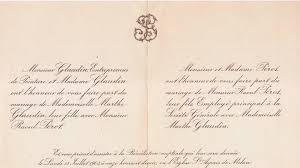 Monsieur Glaudin, Entrepreneur
de Peinture et Madame Glaudin
ont l'honneur de vous faire part du
mariage de Mademoiselle Marthe
Glaudin, leur fille avec Monsieur
Raoul Pérot.
Monsieur et Madame Pérot
ont l'honneur de vous faire part du
mariage de Monsieur Raoul Pérot,
leur fils Employé principal à la
Société Générale avec Mademoiselle
Marthe Glaudin.
Et vous prient d'assister à la Bénédiction nuptiale qui leur sera donnée
le Lundi 11 Juillet 1904 à onze heures